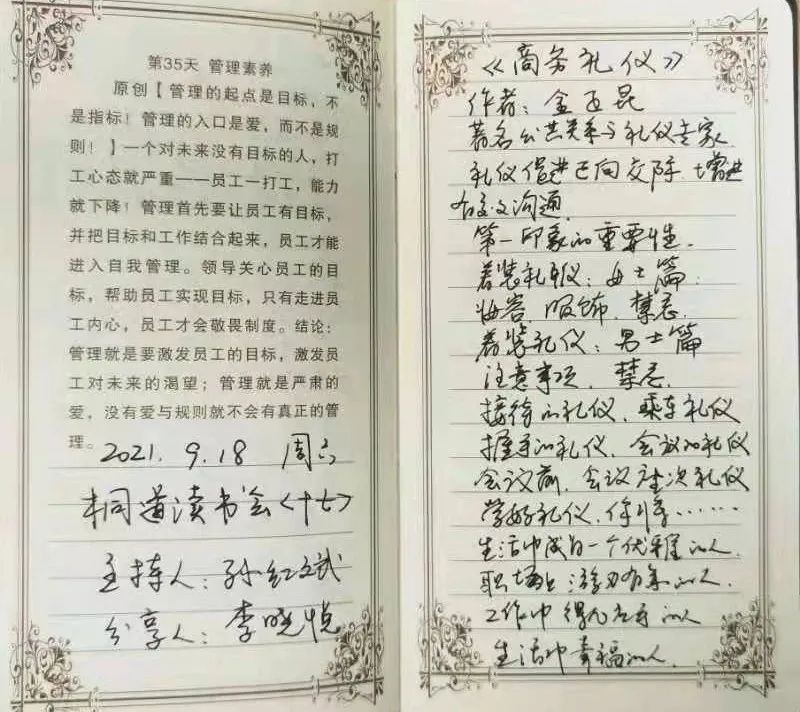 第35天 管理素养
原创【管理的起点是目标，不
是指标！管理的入口是爱，而不是规
则！】一个对未来没有目标的人，打
工心态就严重——员工一打工，能力
就下降！管理首先要让员工有目标，
并把目标和工作结合起来，员工才能
进入自我管理。领导关心员工的目
标，帮助员工实现目标，只有走进员
工内心，员工才会敬畏制度。结论：
管理就是要激发员工的目标，激发员
工对未来的渴望；管理就是严肃的
爱，没有爱与规则就不会有真正的管
理。
2021.9.18 周六
桐道读书会〈十七〉
主持人：孙红斌
分享人：李晓悦
《商务礼仪》
作者：金正昆
著名公共关系与礼仪专家
礼仪促进正向交际、增进
有效沟通
第一印象的重要性.
着装礼仪：女士篇
妆容、服饰、禁忌.
着装礼仪：男士篇
注意事项、禁忌.
接待的礼仪、乘车礼仪
握手的礼仪、会议的礼仪
会议前、会议座次礼仪
学好礼仪、你将……
生活中成为一个优雅的人
职场上游刃有余的人.
工作中得心应手的人
生活中幸福的人.